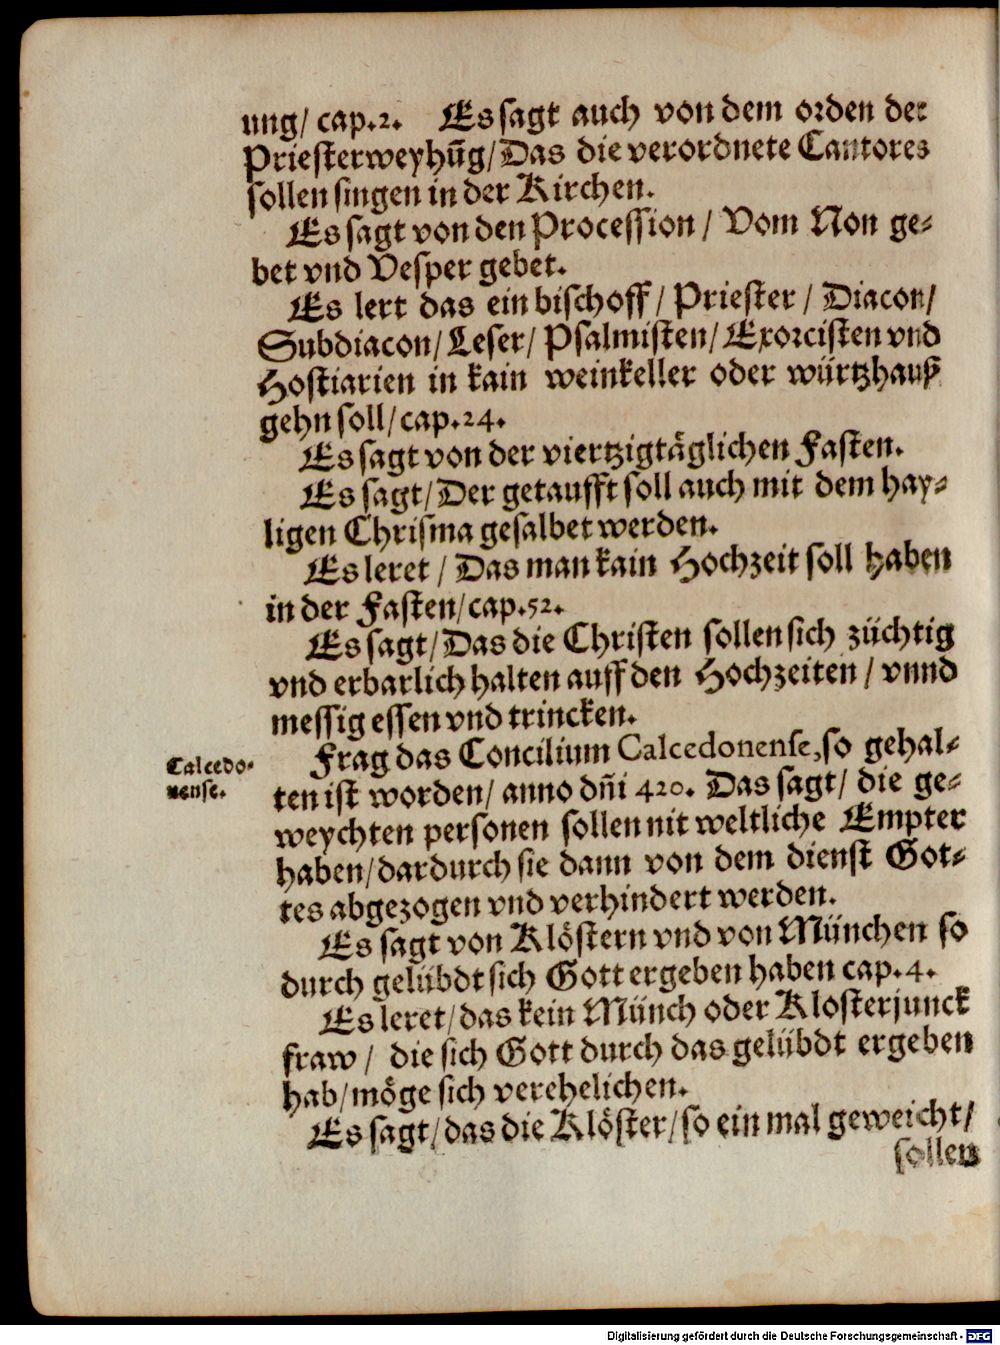 ung/ cap.2. Es sagt auch von dem orden der
Priesterweyhūg/Das die verordnete Cantores
sollen singen in der Kirchen.
Es sagt von den Procession / Vom Non ge⸗
bet vnd Vesper gebet.
Es lert das ein bischoff/ Priester/ Diacon/
Subdiacon/ Leser/ Psalmisten/ Exorcisten vnd
Hostiarien in kain weinkeller oder würtzhauß
gehn soll/cap.24.
Es sagt von der viertzigtäglichen Fasten.
Es sagt/Der getaufft soll auch mit dem hay⸗
ligen Chrisma gesalbet werden.
Es leret / Das man kain Hochzeit soll haben
in der Fasten/cap.52.
Es sagt/Das die Christen sollen sich züchtig
vnd erbarlich halten auff den Hochzeiten / vnnd
messig essen vnd trincken.
Calcedo⸗
nense.
Frag das Concilium Calcedonense,so gehal⸗
ten ist worden/ anno dñi 420. Das sagt/ die ge⸗
weychten personen sollen nit weltliche Empter
haben/dardurch sie dann von dem dienst Got⸗
tes abgezogen vnd verhindert werden.
Es sagt von Klöstern vnd von München so
durch gelübdt sich Gott ergeben haben cap.4.
Es leret/das kein Münch oder Klosterjunck
fraw / die sich Gott durch das gelübdt ergeben
hab/möge sich verehelichen.
Es sagt/das die Klöster/so ein mal geweicht/
sollen
Digitalisierung gefördert durch die Deutsche Forschungsgemeinschaft - DFG